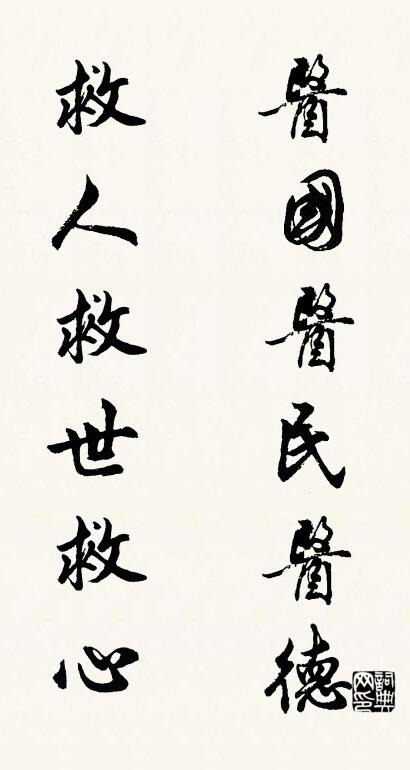 醫國醫民醫德
救人救世救心
詞典網印